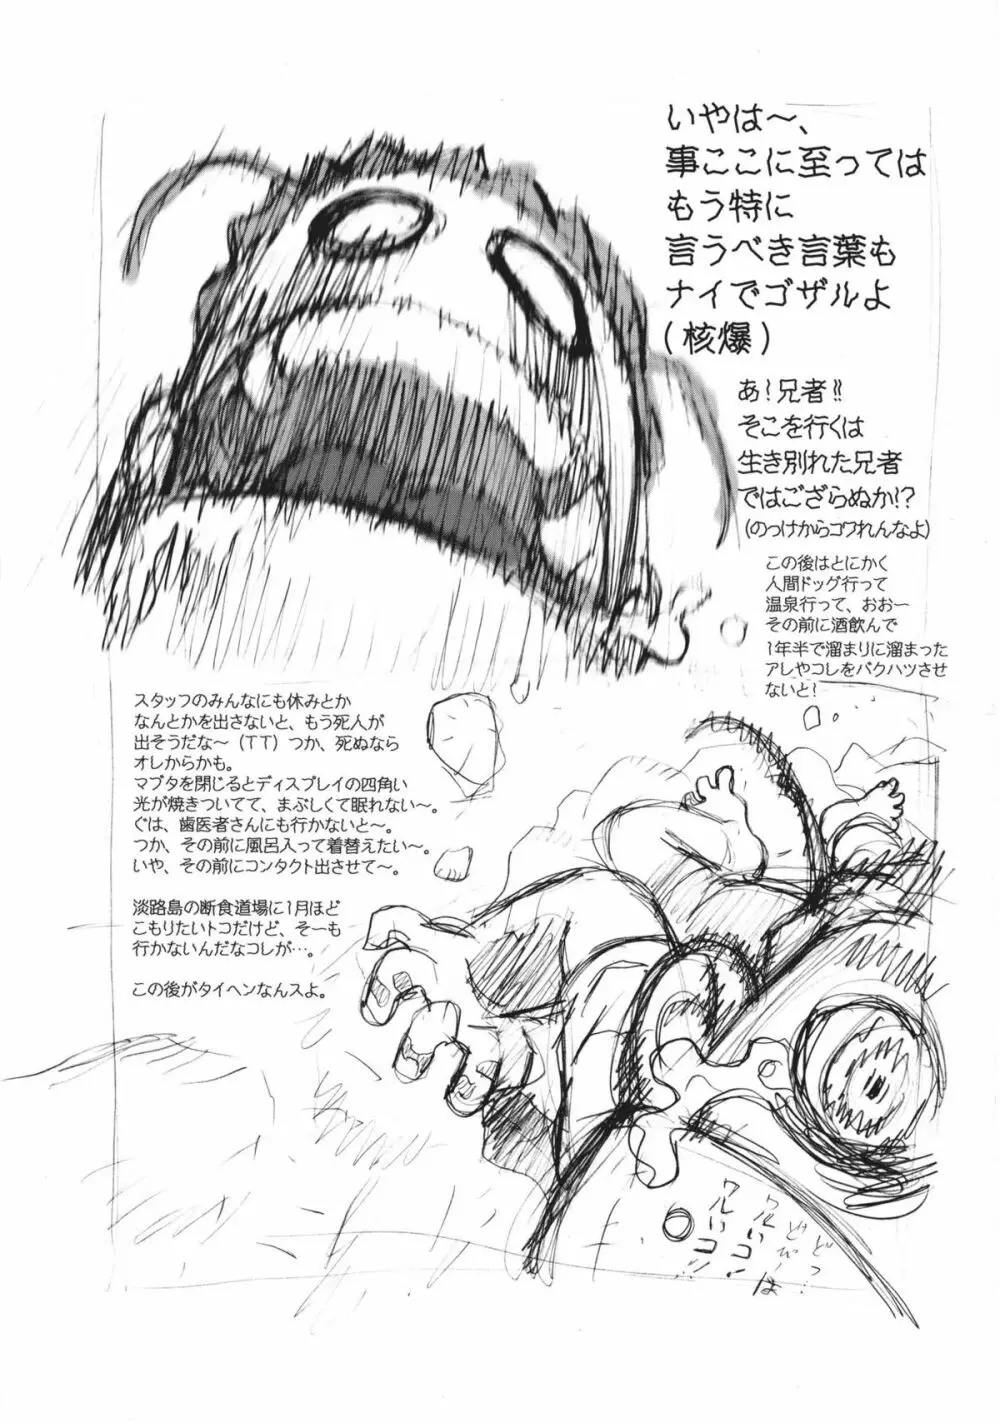 いやは～、
事ここに至っては
もう特に
言うべき言葉も
ナイでゴザルよ
(核爆)
あ!兄者!!
そこを行くは
生き別れた兄者
ではござらぬか!?
(のっけからコワれんなよ)
この後はとにかく
人間ドッグ行って
温泉行って、おお～
その前に酒飲んで
1年半で溜まりに溜まった
アレやコレをバクハツさせ
ないと!
スタッフのみんなにも休みとか
なんとかを出さないと、もう死人が
出そうだな～(TT)つか、死ぬなら
オレからかも。
マブタを閉じるとディスプレイの四角い
光が焼きついてて、まぶしくて眠れない～。
ぐは、歯医者さんにも行かないと～。
つか、その前に風呂入って着替えたい～。
いや、その前にコンタクト出させて～。
淡路島の断食道場に1月ほど
こもりたいトコだけど、そ～も
行かないんだなコレが…。
この後がタイヘンなんスよ。
ワルいコ!
ワルいコ!!